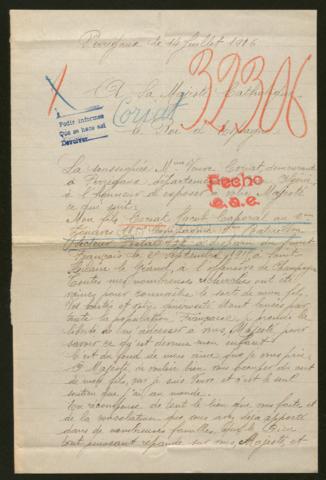 Perregaux le 14 Juillet 1916
A Sa Majesté Catholique
Le Roi d'Espagne
1
32306
Coriat
Pedir informes
Que se hace así
Devolver
Fecho
La soussignée Mme Veuve Coriat, demeurant
à Perregaux département Algérie
a l'honneur d'exposer à votre Majesté
ce qui suit:
Mon fils Coriat Jacob Caporal au 2me
Zouaves
Secteur Postal a disparu du front
Français le 2 Septembre 1915 à Saint
Hilaire le Grand, à l'offensive de Champagne
Toutes mes nombreuses recherches ont été
vaines pour connaître le sort de mon fils.
Vos bontés et générosité étant connues par
toute la population Française, je prends la
liberté de m'adresser à vous, Majesté, pour
savoir ce qu'est devenu mon enfant.
C'est du fond de mon cœur que je vous prie,
Majesté de vouloir bien vous occuper du sort
de mon fils, car je suis Veuve et c'est le seul
soutien que j'ai au monde.
En récompense de tout le bien que vous faites et
de la consolation que vous avez déjà apporté
dans de nombreuses familles, que le Dieu
tout puissant répande sur vous, Majesté, et